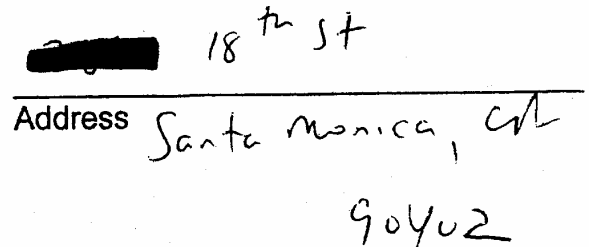 18th St
Address Santa Monica, CA
90402